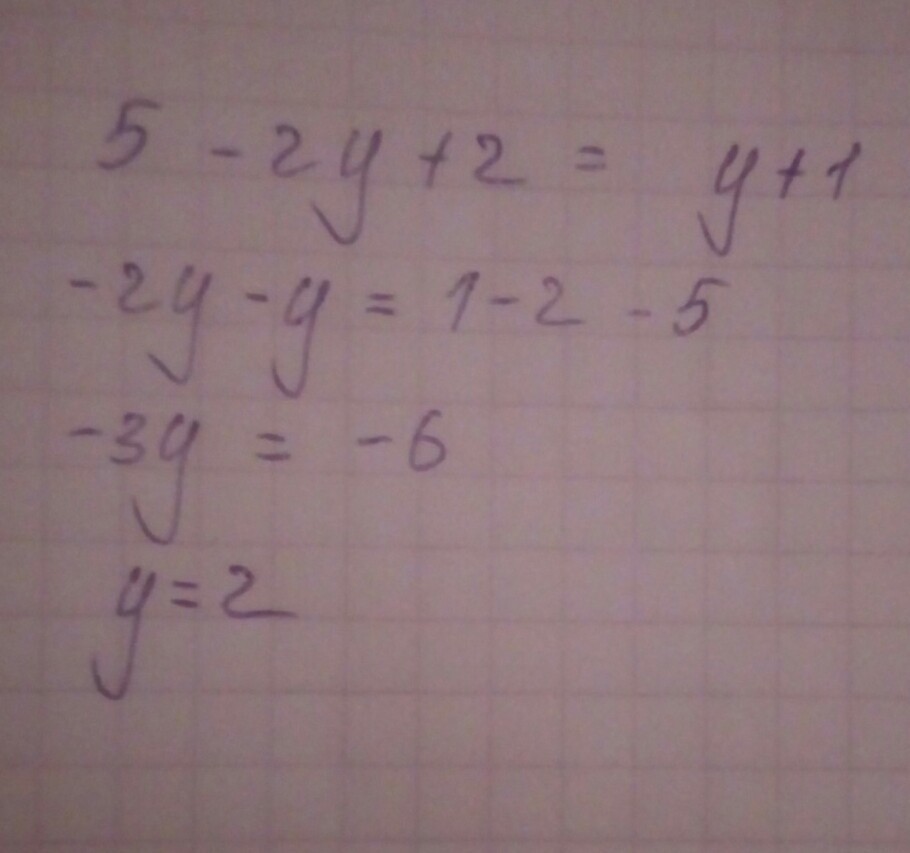 5 - 2y + 2 = y + 1
-2y - y = 1 - 2 - 5
-3y = -6
y = 2